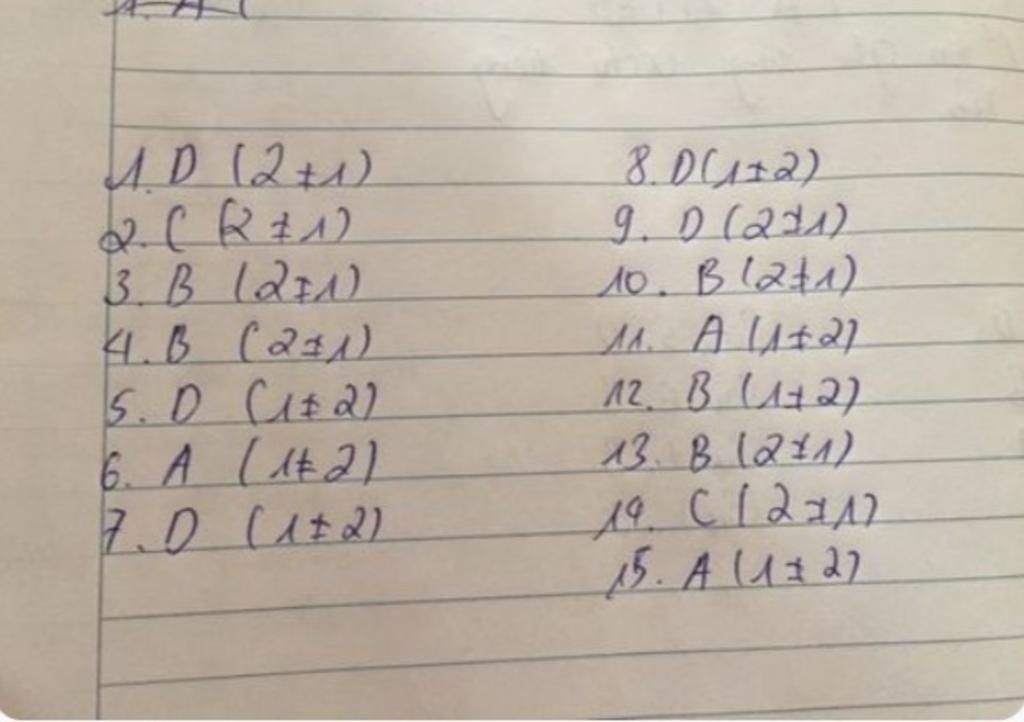 1. D (2 ≠ 1)
2. C (2 ≠ 1)
3. B (2 ≠ 1)
4. B (2 ≠ 1)
5. D (1 ≠ 2)
6. A (1 ≠ 2)
7. D (1 ≠ 2)
8. D (1 ≠ 2)
9. D (2 ≠ 1)
10. B (2 ≠ 1)
11. A (1 ≠ 2)
12. B (1 ≠ 2)
13. B (2 ≠ 1)
14. C (2 ≠ 1)
15. A (1 ≠ 2)